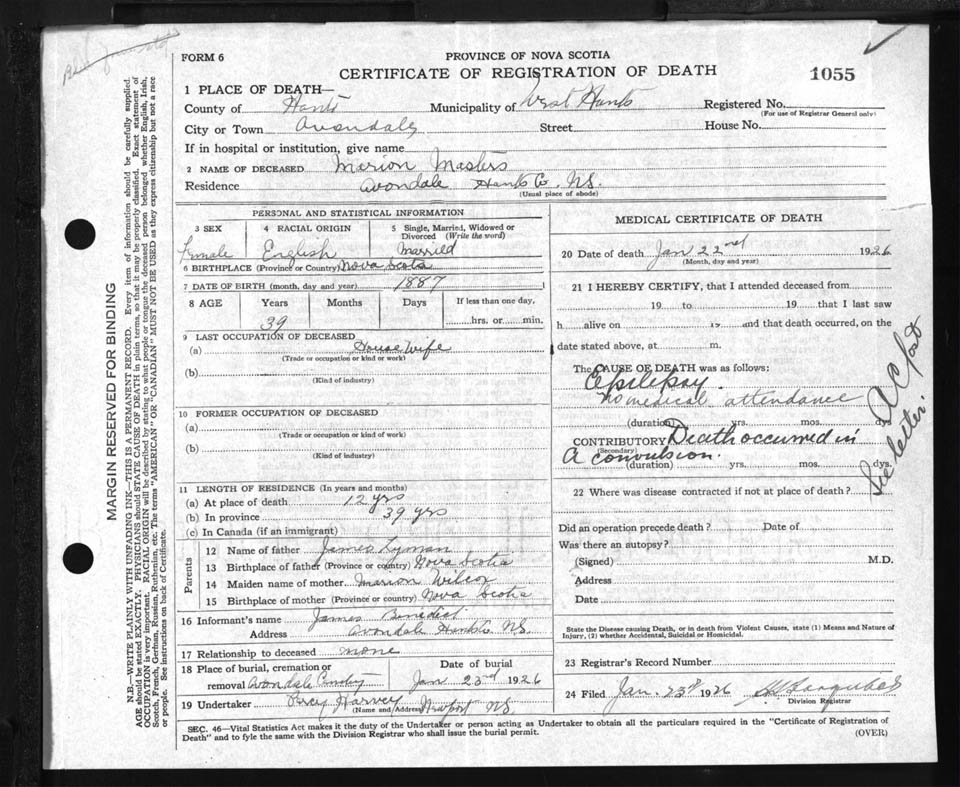 FORM 6
PROVINCE OF NOVA SCOTIA
CERTIFICATE OF REGISTRATION OF DEATH
1055
1 PLACE OF DEATH—
County of Hants Municipality of West Hants Registered No.
(For use of Registrar General only)
City or Town Avondale Street House No.
If in hospital or institution, give name
2 NAME OF DECEASED Marion Masters
Residence Avondale Hants Co. N.S.
(Usual place of abode)
PERSONAL AND STATISTICAL INFORMATION
3 SEX 4 RACIAL ORIGIN 5 Single, Married, Widowed or Divorced (Write the word)
Female English Married
6 BIRTHPLACE (Province or Country) Nova Scotia
7 DATE OF BIRTH (month, day and year) 1887
8 AGE Years Months Days If less than one day,
39 hrs. or min.
9 LAST OCCUPATION OF DECEASED
(a) House Wife
(Trade or occupation or kind of work)
(b)
(Kind of industry)
10 FORMER OCCUPATION OF DECEASED
(a)
(Trade or occupation or kind of work)
(b)
(Kind of industry)
11 LENGTH OF RESIDENCE (In years and months)
(a) At place of death 12 yrs
(b) In province 39 yrs
(c) In Canada (if an immigrant)
Parents
12 Name of father James Lyman
13 Birthplace of father (Province or country) Nova Scotia
14 Maiden name of mother Marion Wilcox
15 Birthplace of mother (Province or country) Nova Scotia
16 Informant's name James Benedict
Address Avondale Hants Co N.S.
17 Relationship to deceased none
18 Place of burial, cremation or removal Avondale Date of burial
Jan 23rd 1926
19 Undertaker Percy Harvey Newport N.S.
(Name and Address)
MEDICAL CERTIFICATE OF DEATH
20 Date of death Jan 22nd 1926
(Month, day and year)
21 I HEREBY CERTIFY, that I attended deceased from
19 to 19 that I last saw
h alive on 19 and that death occurred, on the
date stated above, at m.
The CAUSE OF DEATH was as follows:
Epilepsy.
no medical attendance
(duration) yrs. mos. dys.
CONTRIBUTORY Death occurred in
(Secondary)
A convulsion.
(duration) yrs. mos. dys.
22 Where was disease contracted if not at place of death?
Did an operation precede death? Date of
Was there an autopsy?
(Signed) M.D.
Address
Date
State the Disease causing Death, or in death from Violent Causes, state (1) Means and Nature of
Injury, (2) whether Accidental, Suicidal or Homicidal.
23 Registrar's Record Number
24 Filed Jan. 23rd 1926
Division Registrar
See letter.
SEC. 46—Vital Statistics Act makes it the duty of the Undertaker or person acting as Undertaker to obtain all the particulars required in the "Certificate of Registration of
Death" and to fyle the same with the Division Registrar who shall issue the burial permit.
(OVER)
MARGIN RESERVED FOR BINDING
N.B.—WRITE PLAINLY WITH UNFADING INK—THIS IS A PERMANENT RECORD. Every item of information should be carefully supplied.
AGE should be stated EXACTLY. PHYSICIANS should STATE CAUSE OF DEATH in plain terms, so that it may be properly classified. Exact statement of
OCCUPATION is very important. RACIAL ORIGIN will be described by stating to what people or tongue the deceased person belonged, whether English, Irish,
Scotch, French, German, Russian, Ruthenian, etc. The terms "AMERICAN" OR "CANADIAN" MUST NOT BE USED as they express citizenship but not a race
or people. See instructions on back of Certificate.